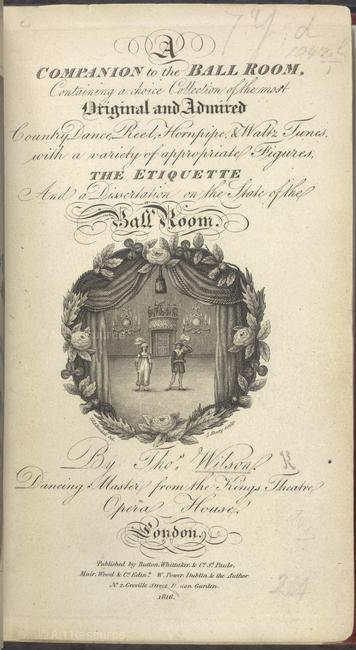 A
COMPANION to the BALL ROOM,
Containing a choice Collection of the most
Original and Admired
Country Dance, Reel, Hornpipe, & Waltz Tunes,
with a variety of appropriate Figures,
THE ETIQUETTE
And a Dissertation on the State of the
Ball Room.
By Thos. Wilson,
Dancing Master from the Kings Theatre
Opera House.
London.
Published by Button, Whittaker, & Co. St. Pauls,
Muir, Wood & Co. Edinr. W. Power, Dublin & the Author
No. 2. Greville Street Garden.
1816.